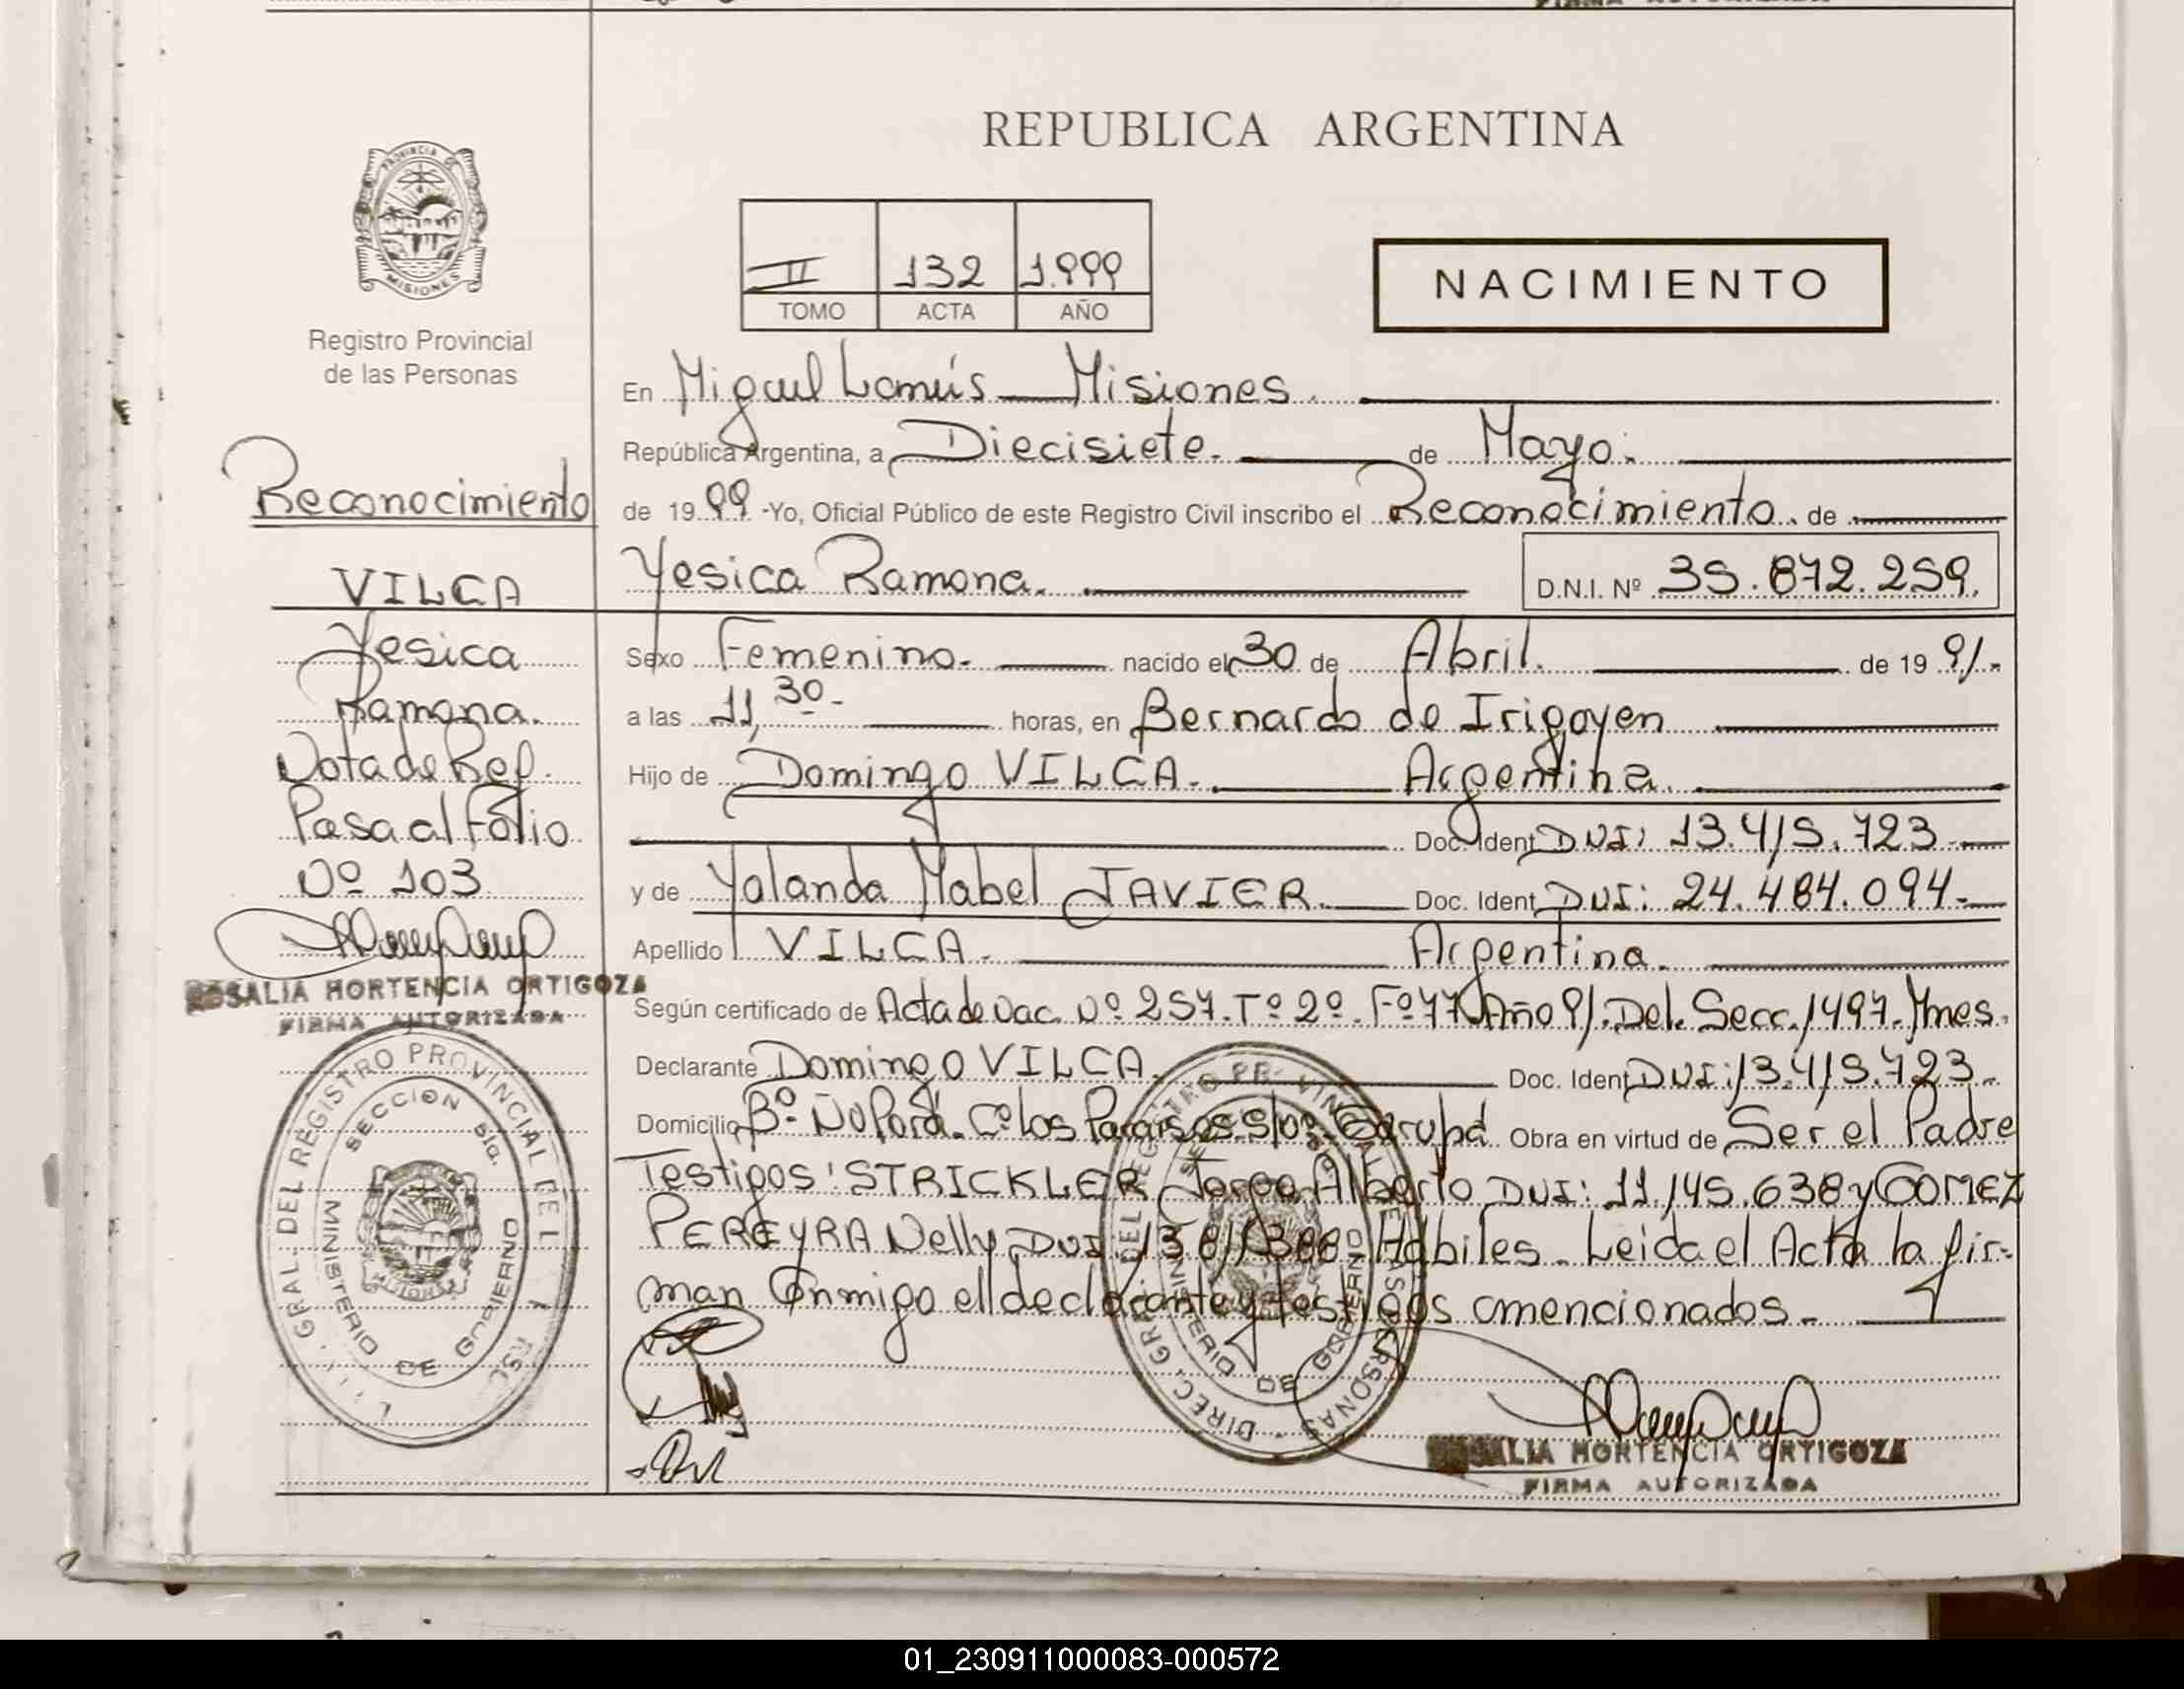 REPUBLICA ARGENTINA
PROVINCIA DE
MISIONES
Registro Provincial
de las Personas
II 132 1.999
TOMO ACTA AÑO
NACIMIENTO
En Miguel Lanús - Misiones.
República Argentina, a Diecisiete. de Mayo.
de 1999. -Yo, Oficial Público de este Registro Civil inscribo el Reconocimiento. de
Yesica Ramona. D.N.I. Nº 35.872.259.
Sexo Femenino. nacido el 30 de Abril. de 19 91.
a las 11,30- horas, en Bernardo de Irigoyen
Hijo de Domingo VILCA. Argentina.
Doc. Ident. DNI: 13.415.723
y de Yolanda Mabel JAVIER. Doc. Ident. DNI: 24.484.094.
Apellido VILCA. Argentina.
Según certificado de Acta de Nac. Nº 257. Tº 2º. Fº 77 Año 91. Del. Secc. 1497. Mnes.
Declarante Domingo VILCA. Doc. Ident. DNI: 13.415.723.
Domicilio Bº Ñu Porá. Cº los Paraisos s/nº Garupá. Obra en virtud de Ser el Padre
Testigos: STRICKLER Jorge Alberto DNI: 11.145.638 y GOMEZ
PEREYRA Nelly DNI Hábiles. Leida el Acta la fir-
man Conmigo el declarante y testigos mencionados.
Reconocimiento
VILCA
Yesica
Ramona.
Nota de Ref.
Pasa al Folio
Nº 103
ROSALIA HORTENCIA ORTIGOZA
FIRMA AUTORIZADA
GRAL. DEL REGISTRO PROVINCIAL DE L
SECCION 5ta.
MINISTERIO DE GOBIERNO
DIREC. GRAL. DEL REGISTRO PROVINCIAL DE LAS PERSONAS
MINISTERIO DE GOBIERNO
ROSALIA HORTENCIA ORTIGOZA
FIRMA AUTORIZADA
01_230911000083-000572